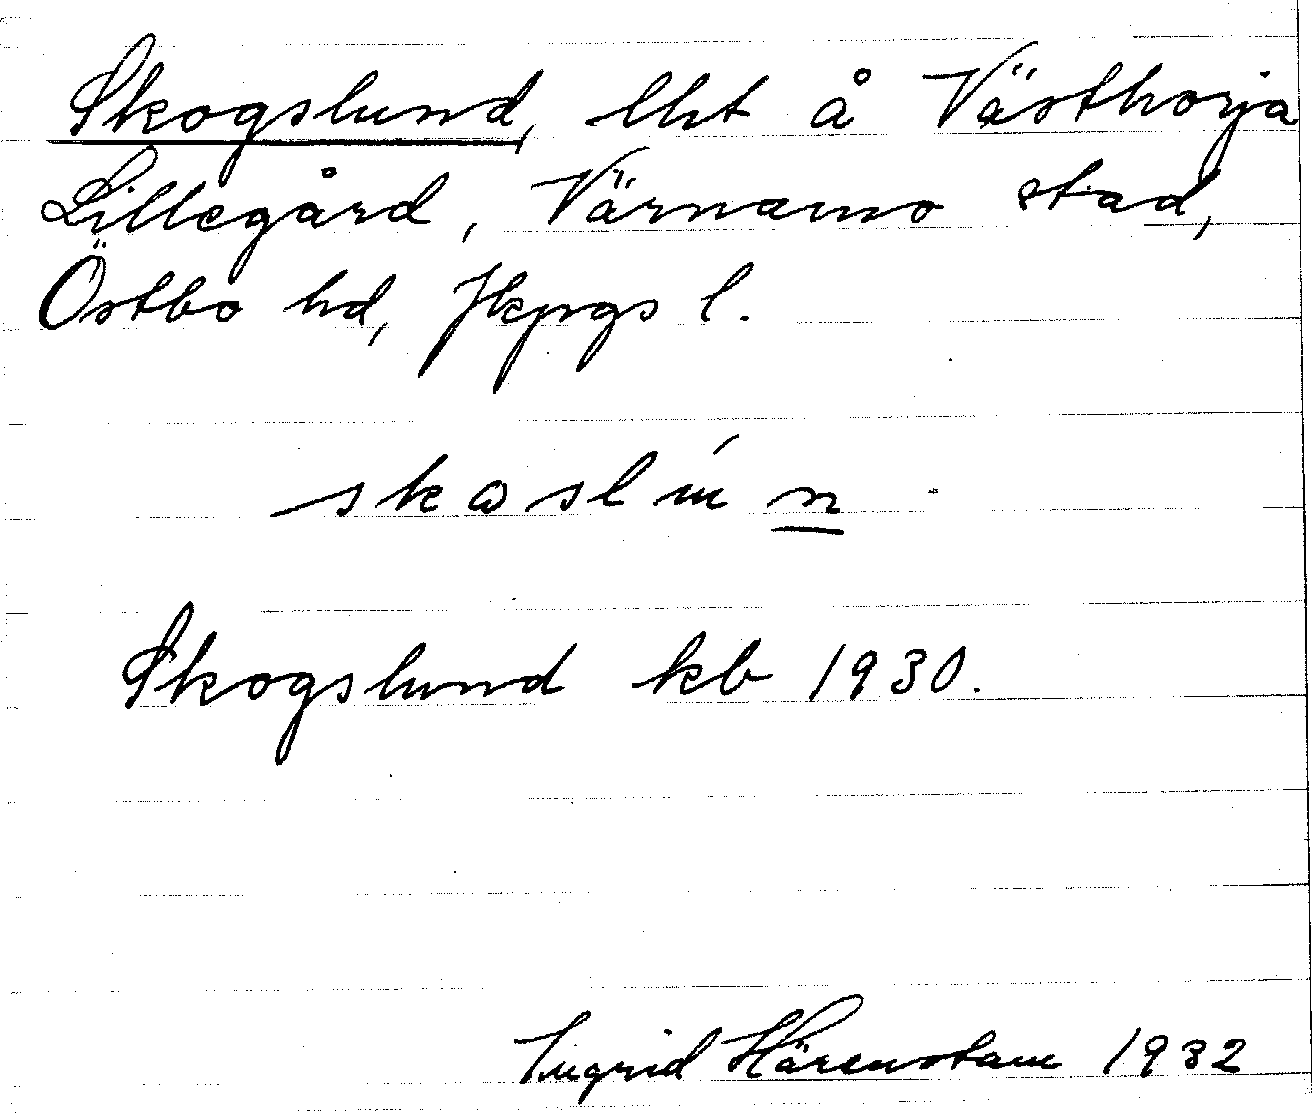 Skogslund, lht å Västhorja
Lillegård, Värnamo stad,
Östbo hd, Jkpgs l.
skɷslún
Skogslund kb 1930.
Ingrid Härenstam 1932